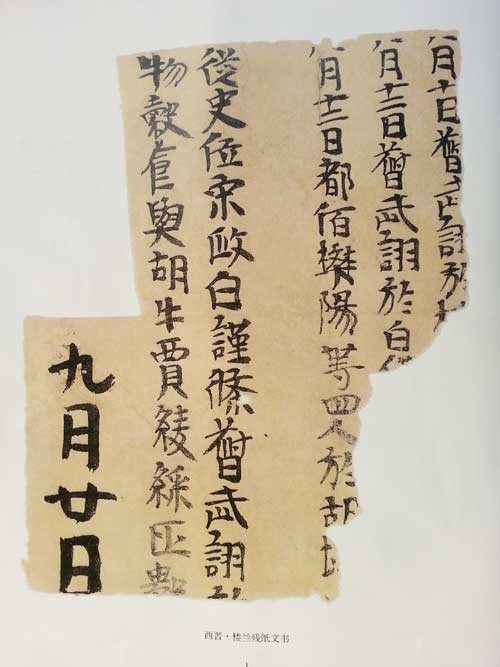 月十日督武詡於
月十二日督武詡於白
月十二日都佰樊陽等四人於胡
從史位宋政白謹條督武詡
物穀食與胡牛賈綾綵匹數
九月廿日
西晋·楼兰残纸文书
1